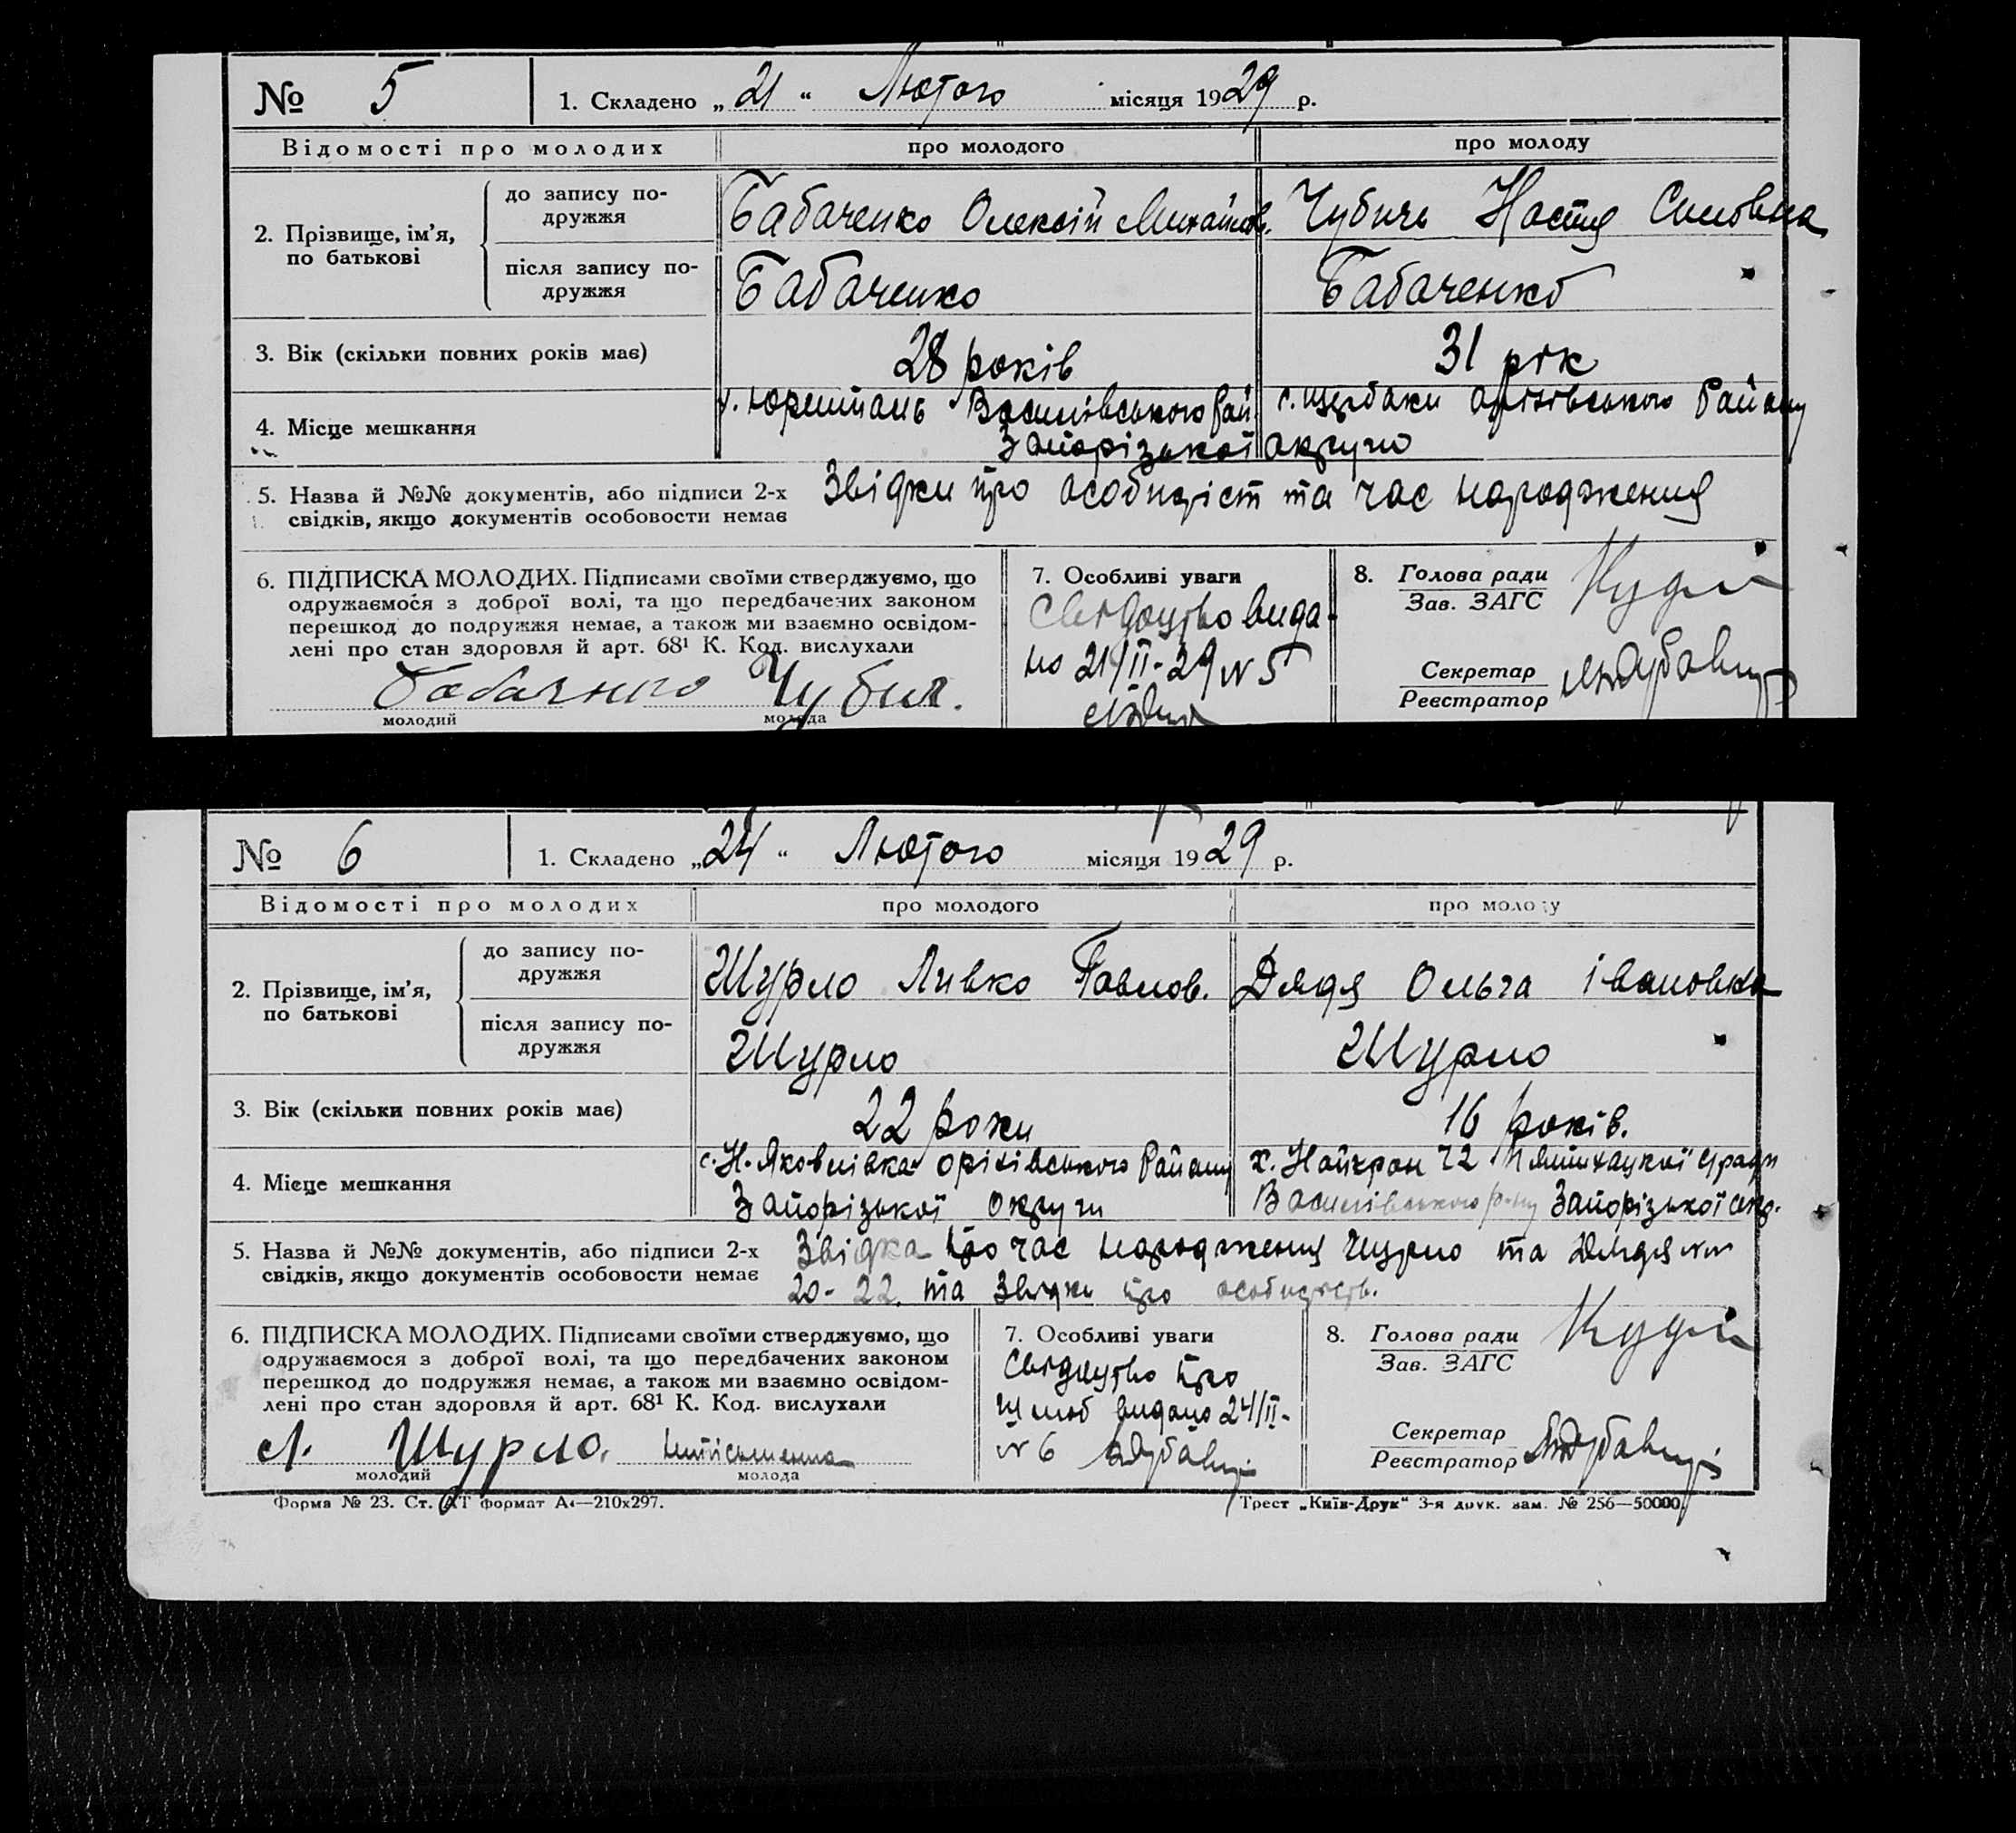 № 5 1. Складено „21“ Лютого місяця 1929 р.
Відомості про молодих про молодого про молоду
2. Прізвище, ім’я, по батькові
до запису по-
дружжя
Бабаченко Олексій Михайлов. Чубичь Настя
після запису по-
дружжя
Бабаченко Бабаченко
3. Вік (скільки повних років має) 28 років 31 рік
4. Місце мешкання
Василівського Рай. с. Щербаки Оріхівського Району
Запорізької округи
5. Назва й №№ документів, або підписи 2-х
свідків, якщо документів особовости немає
Звідки про особидіст та час народження
6. ПІДПИСКА МОЛОДИХ. Підписами своїми стверджуємо, що
одружаємося з доброї волі, та що передбачених законом
перешкод до подружжя немає, а також ми взаємно освідом-
лені про стан здоровля й арт. 68¹ К. Код. вислухали
Бабаченко Чубич.
молодий молода
7. Особливі уваги
Свідоцтво вида-
но 21/II-29 № 5
8. Голова ради
Зав. ЗАГС
Секретар
Реєстратор
№ 6 1. Складено „24“ Лютого місяця 1929 р.
Відомості про молодих про молодого про молоду
2. Прізвище, ім’я, по батькові
до запису по-
дружжя
Шурло Павлов. Дядя Ольга Івановна
після запису по-
дружжя
Шурло Шурло
3. Вік (скільки повних років має) 22 роки 16 років.
4. Місце мешкання
с. Н. Яковлівка Оріхівського Району х. 22
Запорізької округи Василівського Запорізької окр.
5. Назва й №№ документів, або підписи 2-х
свідків, якщо документів особовости немає
Звідка про час народження Шурло та Дядя №№
20-22. та Звідки про
6. ПІДПИСКА МОЛОДИХ. Підписами своїми стверджуємо, що
одружаємося з доброї волі, та що передбачених законом
перешкод до подружжя немає, а також ми взаємно освідом-
лені про стан здоровля й арт. 68¹ К. Код. вислухали
Л. Шурло. неписьменна
молодий молода
7. Особливі уваги
Свідоцтво про
шлюб видано 24/II-
№ 6
8. Голова ради
Зав. ЗАГС
Секретар
Реєстратор
Форма № 23. Ст. АТ формат А₄—210х297. Трест „Київ-Друк“ 3-я друк. зам. № 256—50000.